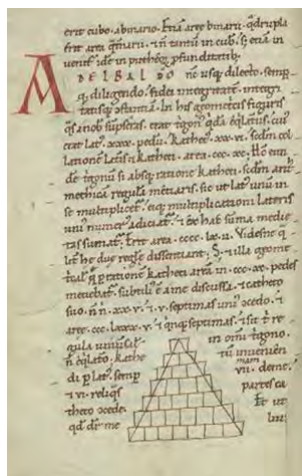 erit cubo. abinario. Etiã areę binarii. qdrupla
erit area qrnarii. & ñ tantũ in cub. s; etiã in
uenit
A DELBALDO nc usq; dilecto. semp
q; diligendo. fidei integritatẽ. integri
tatisq; In his geometricis figuris
qs a nob sũpseras. erat
erat lat'. xxx. pedũ. kathet'. xx.vi. scdm col
lationẽ lateris & katheti. area. ccc.xc. eun
dẽ si absq; ratione katheti. scdm arit
methicã regulã metiaris. sic ut lat' unũ in
se multiplicet'. eiq; multiplicationi lateris
uni' numer' adiciat'. & ex hac sũma medie
tas sumat'. Erit area. cccc.lx.v. Videsne q
lit he due regle dissentiant; S; & illa geome
q p rationẽ katheti areã in. ccc.xc. pedes
metiebat'. subtili' ẽ a me discussa. & catheto
suo ñ xx.v. & v. septimas uni' ccedo. &
areę. ccc.lxxx.v. & qnq; septimas. & sit t re
gula in omi tigono.
kathe tũ inuenien
di p lat'. semp mam vii. deme.
& vi. reliqs partes ca
theto ccede. Et ut
qd dr me